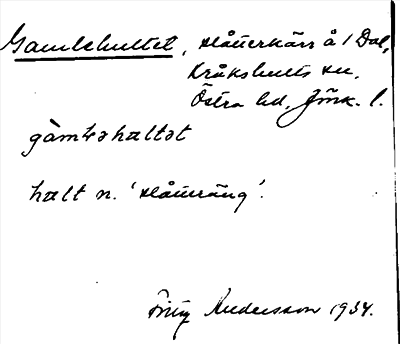 Gamlehultet, slåtterkärr å 1 Dal,
Kråkshults sn,
Östra hd, Jönk. l.
gàmləhaltət
halt n. 'slåtteräng'.
Fritz Andersson 1934.